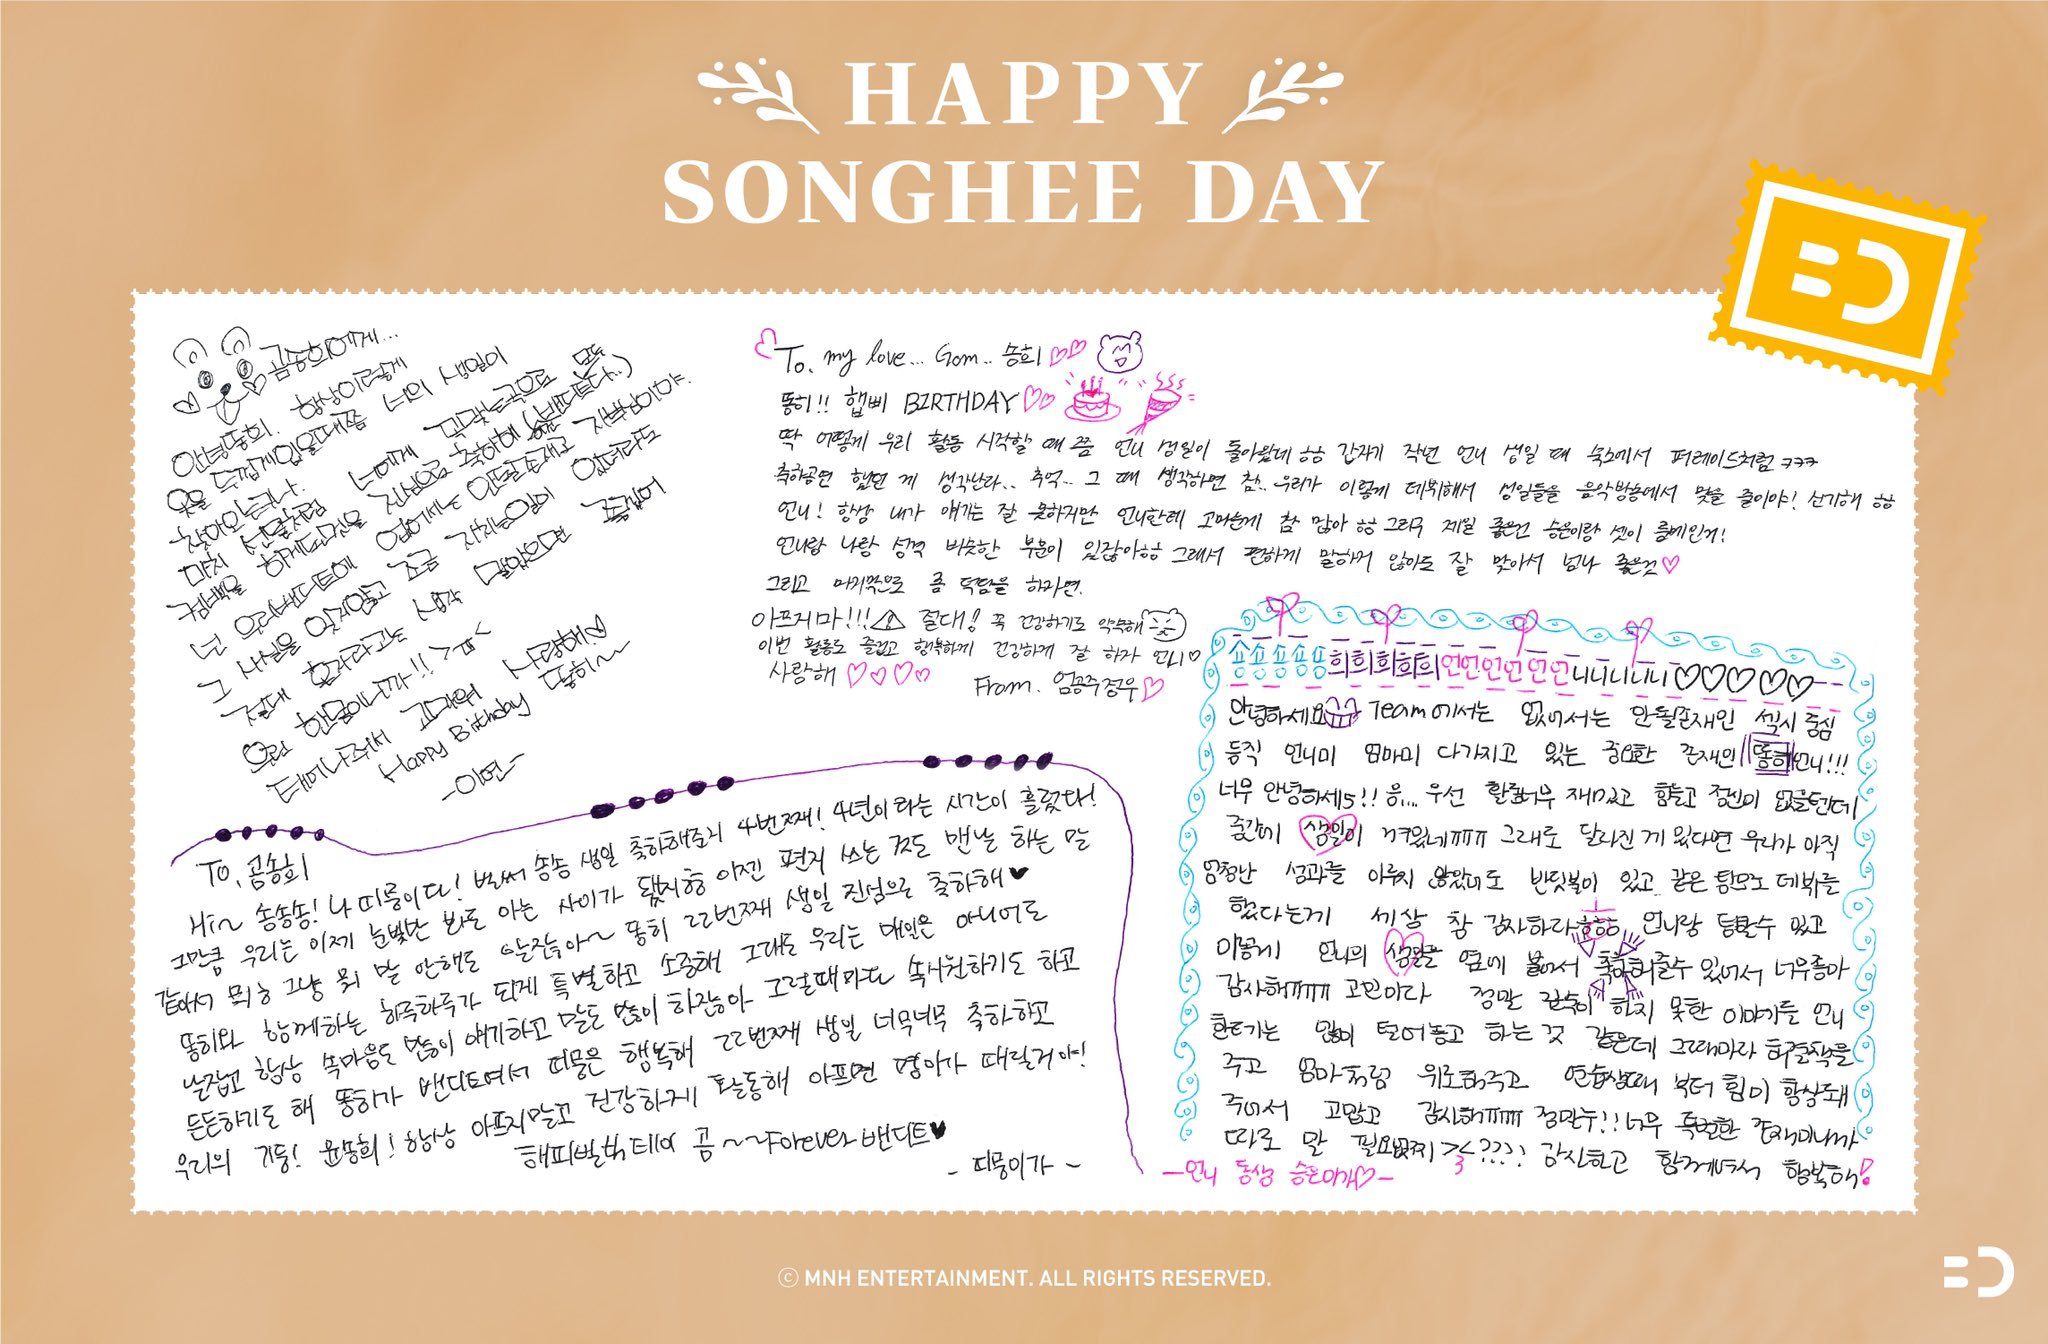 HAPPY
SONGHEE DAY
BD
곰송희에게...
안녕똥희. 항상이렇게
웃을 느낌게있을때쯤 너의 생일이
찾아오는구나.
마치 선물처럼 너에게 딱맞는곡으로 모든
컴백을 하게되면서 진심으로 축하해 (밴디트다..)
넌 우리밴디트에 없어서는 안될존재고 자부심이야.
그 사실을 잊지않고 조금 지치는일이 있더라도
절대 혼자라고는 생각 말았으면 좋겠어
우린 한몸이니까!! >ㅠ<
태어나줘서 고마워 사랑해♡
Happy Birthday 똥희~
-이연-
To. my love... Gom.. 송희♡♡
똥히!! 햅삐 BIRTHDAY♡♡
딱 어떻게 우리 활동 시작할 때 쯤 언니 생일이 돌아왔네 ㅎㅎ 갑자기 작년 언니 생일 때 숙소에서 퍼레이드처럼 ㅋㅋㅋ
축하공연 했던 게 생각난다.. 추억.. 그 때 생각하면 참.. 우리가 이렇게 데뷔해서 생일들을 음악방송에서 맞을 줄이야! 신기해 ㅎㅎ
언니! 항상 내가 얘기는 잘 못하지만 언니한테 고마운게 참 많아 ㅎㅎ 그리구 제일 좋은건 승은이랑 셋이 룸메인거!
언니랑 나랑 성격 비슷한 부분이 있잖아ㅎㅎ 그래서 편하게 말하지 않아도 잘 맞아서 넘나 좋은것♡
그리고 마지막으로 좀 덕담을 하자면.
아프지마!!! 절대! 꼭 건강하기로 약속해
이번 활동도 즐겁고 행복하게 건강하게 잘 하자 언니♡
사랑해 ♡♡♡♡
From. 엄공주정우♡
To. 곰송희
Hi~ 송송송! 나 띠룽이다! 벌써 송송 생일 축하해줄지 4번째! 4년이라는 시간이 흘렀다!
그만큼 우리는 이제 눈빛만 봐도 아는 사이가 됐지ㅎㅎ 이젠 편지 쓰는 것도 맨날 하는 말
같아서 뭐 그냥 뭐 말 안해도 알잖아~ 똥히 22번째 생일 진심으로 축하해♥
똥히와 함께하는 하루하루가 되게 특별하고 소중해 그래도 우리는 매일은 아니어도
날잡고 항상 속마음도 많이 얘기하고 말도 많이 하잖아 그럴때마다 속시원하기도 하고
든든하기도 해 똥히가 밴디트여서 띠몽은 행복해 22번째 생일 너무너무 축하하고
우리의 기둥! 윤똥희! 항상 아프지말고 건강하게 활동해 아프면 명아가 때릴거야!
해피벌쓰데이 곰~~Forever 밴디트♥
- 띠몽이가 -
숑숑숑숑숑희희희희희언언언언언언니니니니니♡♡♡♡♡
안녕하세요 Team에서는 없어서는 안될존재인 섹시 둥심
듬직 언니미 엄마미 다가지고 있는 중요한 존재인 똥히언니!!!
너무 안녕하세5!! 음... 우선 활동너무 재미있고 힘들고 정신이 없을텐데
중간에 생일이 껴있네ㅠㅠㅠ 그래도 달라진게 있다면 우리가 아직
엄청난 성과를 이루지 않았어도 반딧불이 있고 같은 팀으로 데뷔를
했다는게 세상 참 감사하라 ㅎㅎㅎ 언니랑 활동할수 있고
이렇게 언니의 생일을 옆에 붙어서 축하해줄수 있어서 너무좋아
감사해ㅠㅠㅠ 고민이다 정말 깊숙이 하지 못한 이야기를 언니
한테는 많이 털어놓고 하는 것 같은데 그때마다 해결책을
주고 엄마처럼 위로해주고 연습생때 부터 힘이 항상돼
주어서 고맙고 감사해ㅠㅠㅠ 정말누!! 너무 특별한 존재이니까
따로 말 필요없찌 >3<???? 감사하고 함께여서 행복해!
-언니 동생 승은이가♡-
ⓒ MNH ENTERTAINMENT. ALL RIGHTS RESERVED.
BD